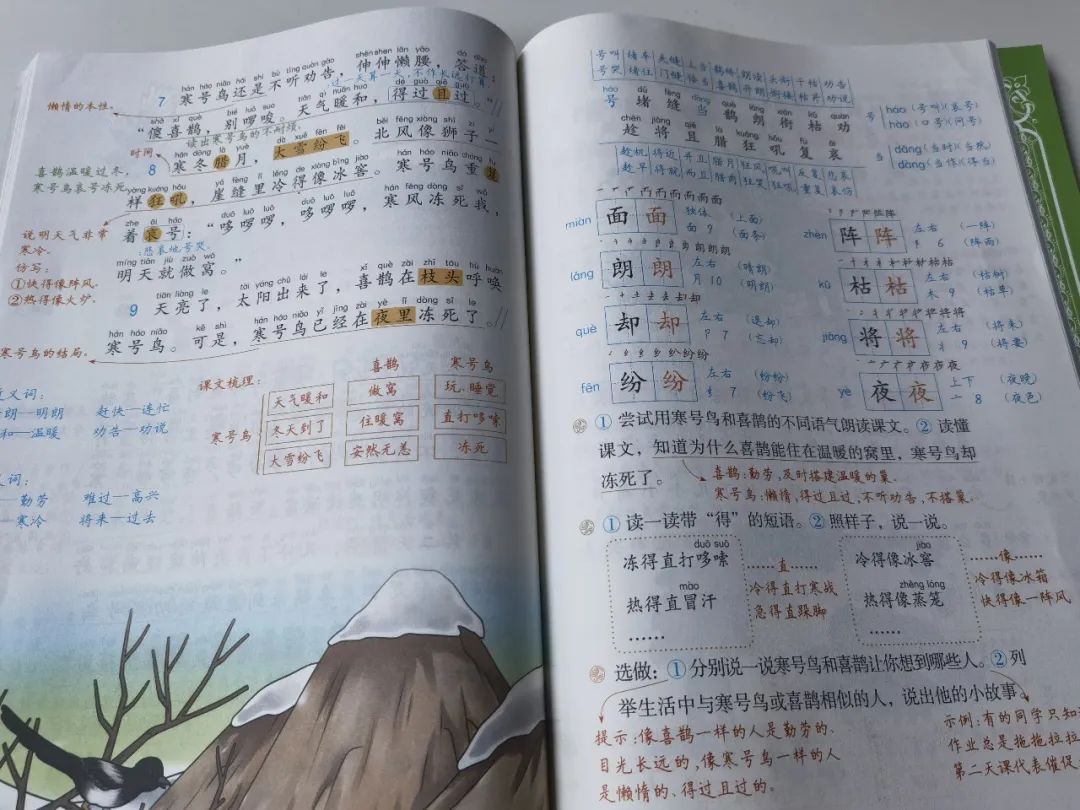 shēn shen lǎn yāo dá dào
hán háo niǎo hái shi bù tīng quàn gào
7 寒号鸟还是不听劝告，伸伸懒腰，答道：
懒惰的本性。
过一天算一天，不作长远打算。
“傻喜鹊，别啰唆。天气暖和，得过且过。”
读出寒号鸟的不耐烦。
时间
8 寒冬腊月，大雪纷飞。北风像狮子一
喜鹊温暖过冬，
寒号鸟哀号冻死。
样狂吼，崖缝里冷得像冰窖。寒号鸟重复
着哀号：“哆啰啰，哆啰啰，寒风冻死我，
说明天气非常
寒冷。
悲哀地号哭。
明天就做窝。”
仿写：
①快得像阵风。
②热得像火炉。
tiān liàng le tài yáng chū lái le
9 天亮了，太阳出来了，喜鹊在枝头呼唤
寒号鸟。可是，寒号鸟已经在夜里冻死了。
寒号鸟的结局。
义词：
朗—明朗 赶快—连忙
和—温暖 劝告—劝说
义词：
—勤劳 难过—高兴
—寒冷 将来—过去
课文梳理：
喜鹊 寒号鸟
寒号鸟
天气暖和 做窝 玩、睡觉
冬天到了 住暖窝 直打哆嗦
大雪纷飞 安然无恙 冻死
号叫 堵车 夹缝 上当 鹤鹑 朗读 头衔 干枯 劝告
号哭 堵住 门缝 恰当 喜鹊 开朗 衔接 枯井 劝说
号 堵 缝 当 鹊 朗 衔 枯 劝
趁 将 且 腊 狂 吼 复 哀
趁机 将近 并且 腊月 狂风 吼叫 反复 悲哀
趁早 将就 而且 腊肉 狂笑 狂吼 重复 哀伤
号 háo（号叫）（哀号）
hào（口号）（问号）
当 dāng（当时）（当然）
dàng（当作）（得当）
miàn 面 面 独体 面 9 （上面）（面条）
zhèn 阵 阵 左右 阝 6 （一阵）（阵雨）
lǎng 朗 朗 左右 月 10 （晴朗）（明朗）
kū 枯 枯 左右 木 9 （枯树）（枯草）
què 却 却 左右 卩 7 （退却）（忘却）
jiāng 将 将 左右 丬 9 （将来）（将要）
fēn 纷 纷 左右 纟 7 （纷纷）（纷飞）
yè 夜 夜 上下 亠 8 （夜晚）（夜色）
① 尝试用寒号鸟和喜鹊的不同语气朗读课文。② 读懂
课文，知道为什么喜鹊能住在温暖的窝里，寒号鸟却
冻死了。
喜鹊：勤劳，及时搭建温暖的巢。
寒号鸟：懒惰，得过且过，不听劝告，不搭巢。
① 读一读带“得”的短语。② 照样子，说一说。
duō suō
冻得直打哆嗦
mào
热得直冒汗
……
……直……
冷得直打寒战
急得直跺脚
jiào
冷得像冰窖
zhēng lóng
热得像蒸笼
……
……像……
冷得像冰箱
快得像一阵风
选做：① 分别说一说寒号鸟和喜鹊让你想到哪些人。② 列
举生活中与寒号鸟或喜鹊相似的人，说出他的小故事
提示：像喜鹊一样的人是勤劳的、
目光长远的，像寒号鸟一样的人
是懒惰的、得过且过的。
示例：有的同学只知
作业总是拖拖拉拉
第二天课代表催促